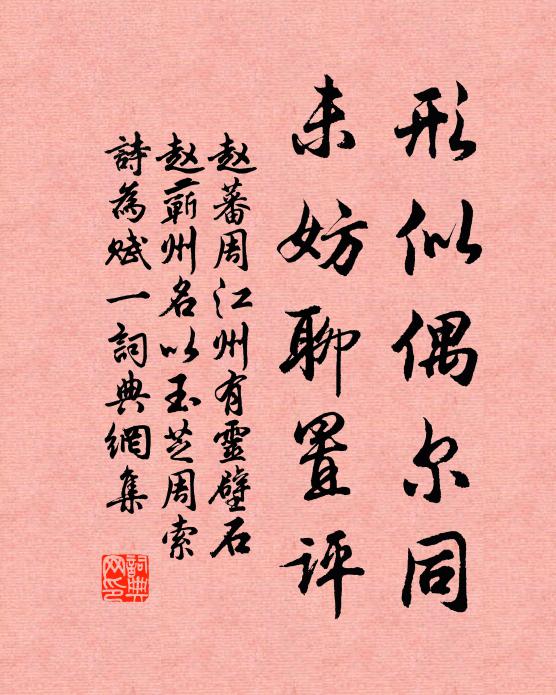 形似偶尔同
未妨聊置评
赵蕃周江州有灵壁石
赵蕲州名以玉芝周索
詩為赋一詞典網集
詞典网印